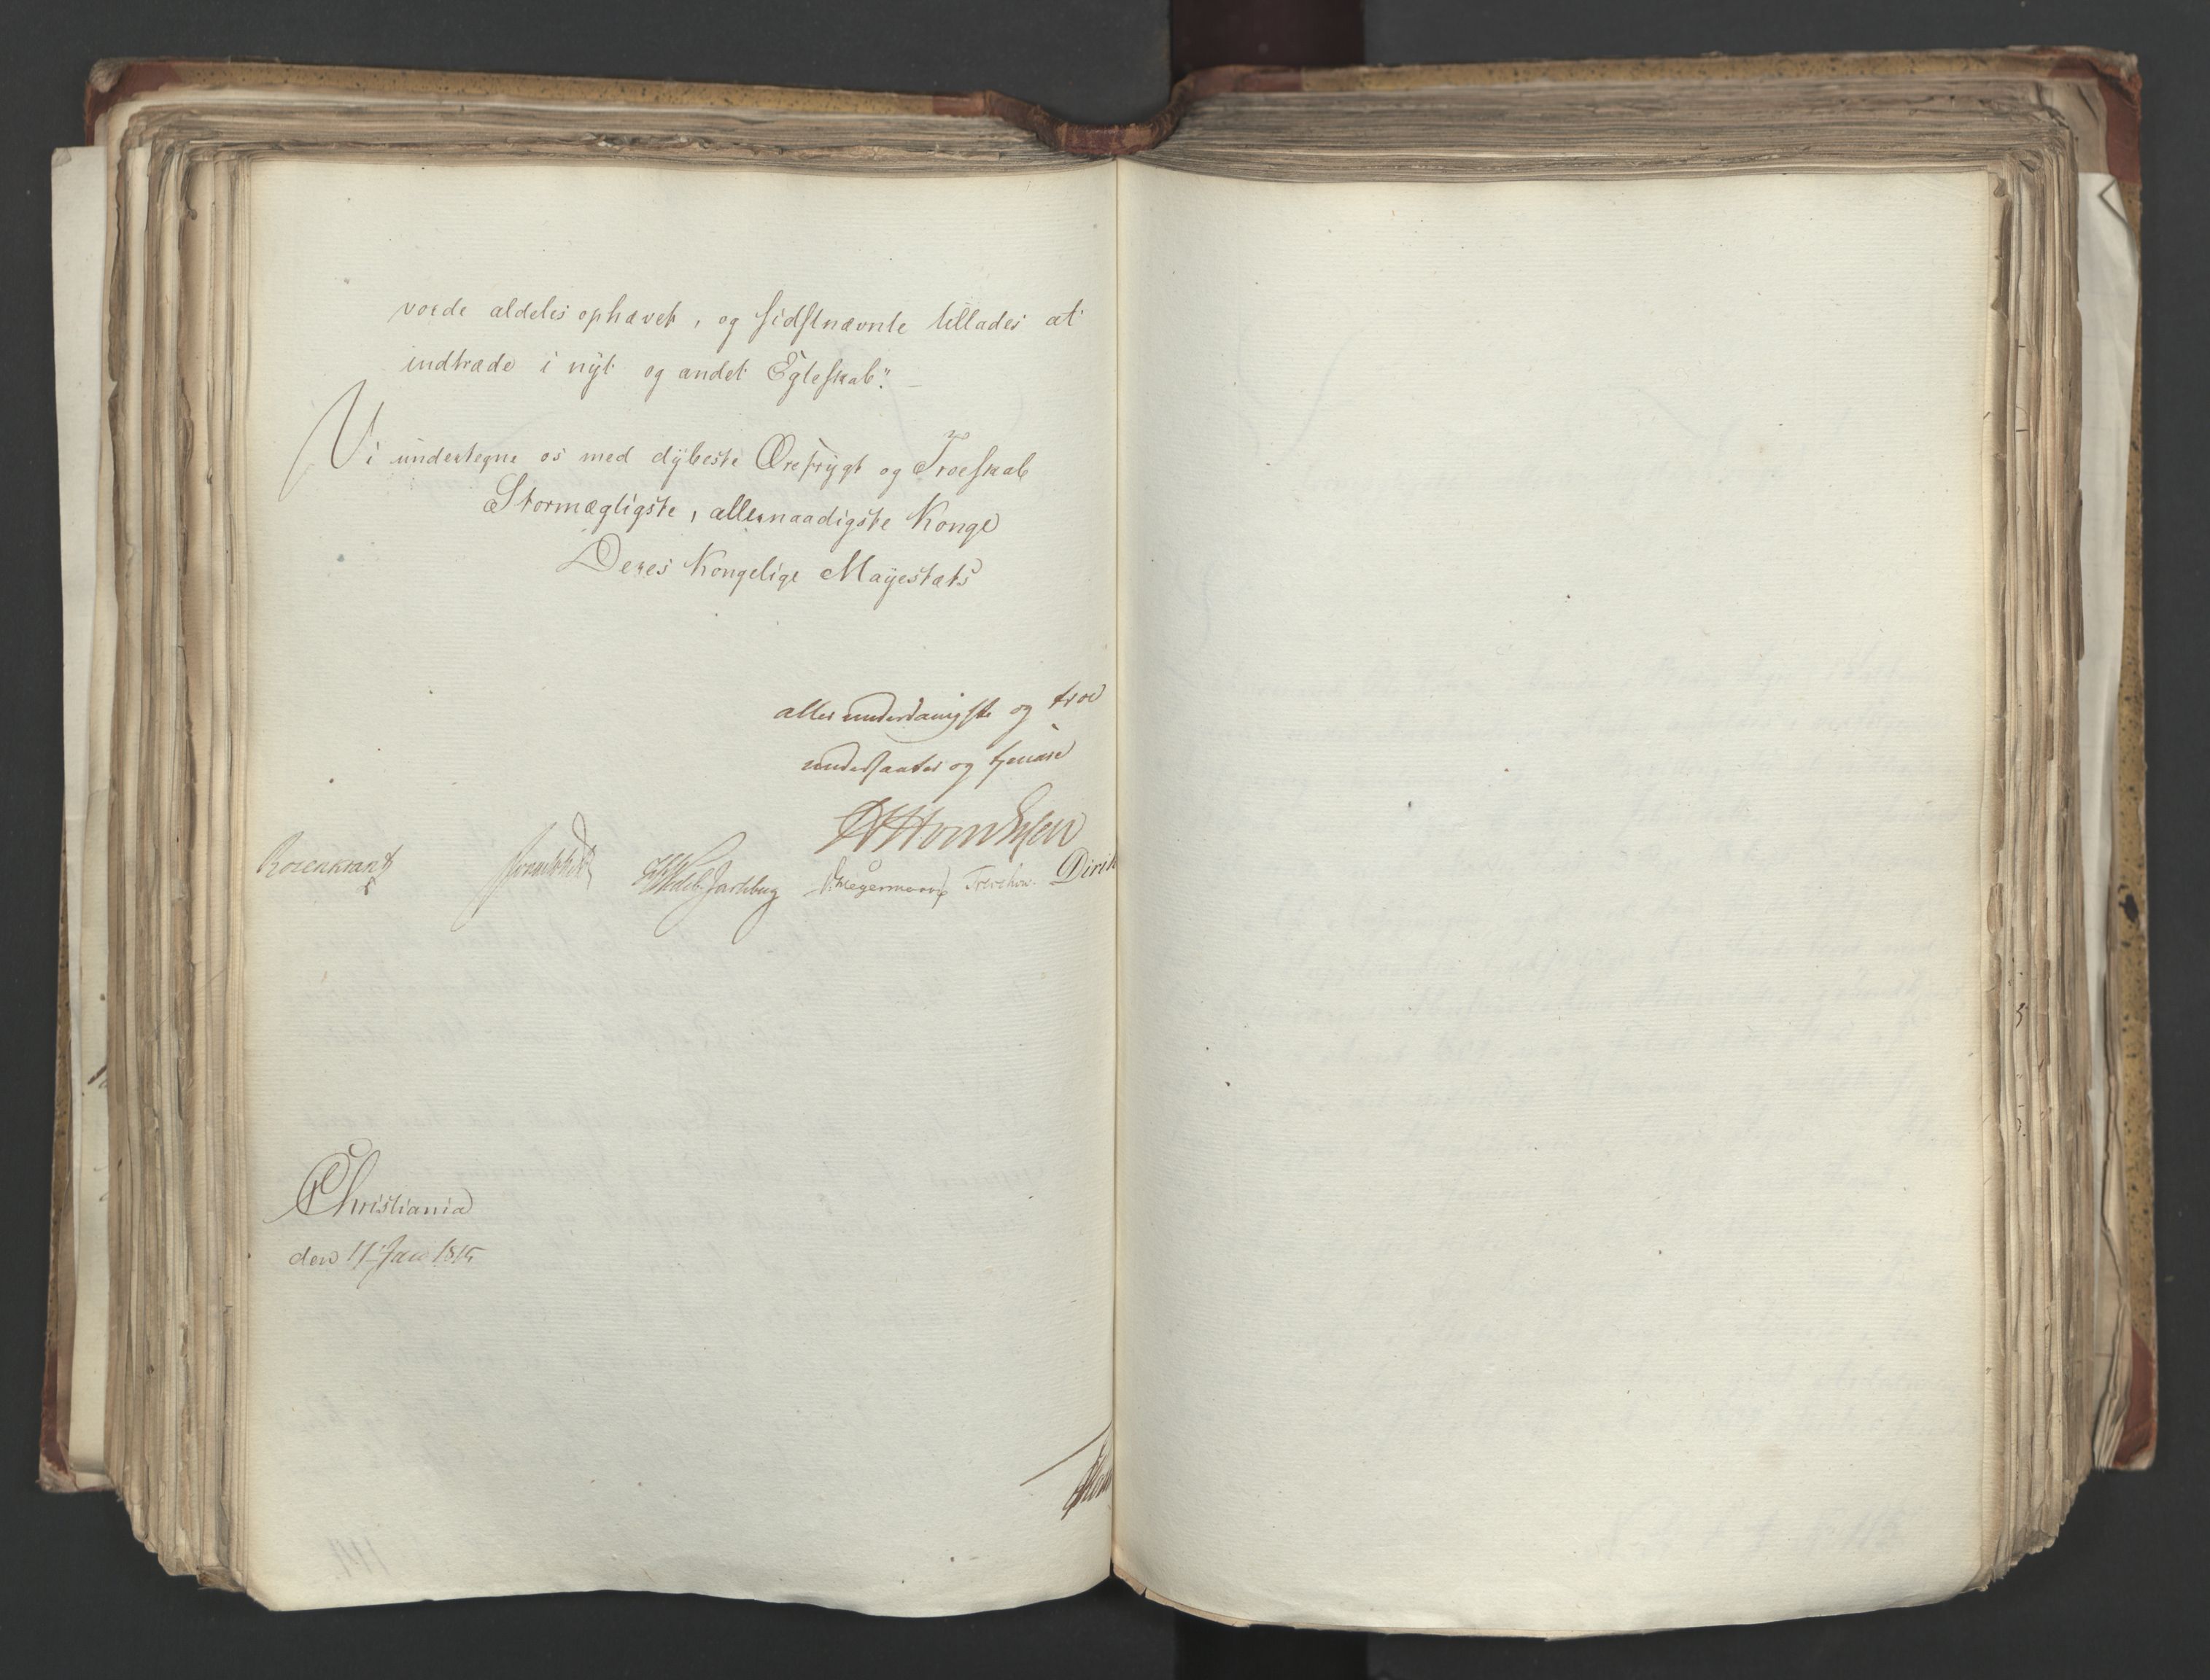 vorde aldeles ophævet, og sidstnævnte tillades at
indtræde i nyt og andet Egteskab".
Vi undertegne os med dybeste Ærefrygt og Troeskab
Stormægtigste, allernaadigste Konge
Deres Kongelige Mayestæts
allerunderdanigste og troe
undersaatter og tjenere
Rosenkrantz
Wedel Jarlsberg
Hegermann
Treschow
Dirik
Christiania
den 17 Jan 1815